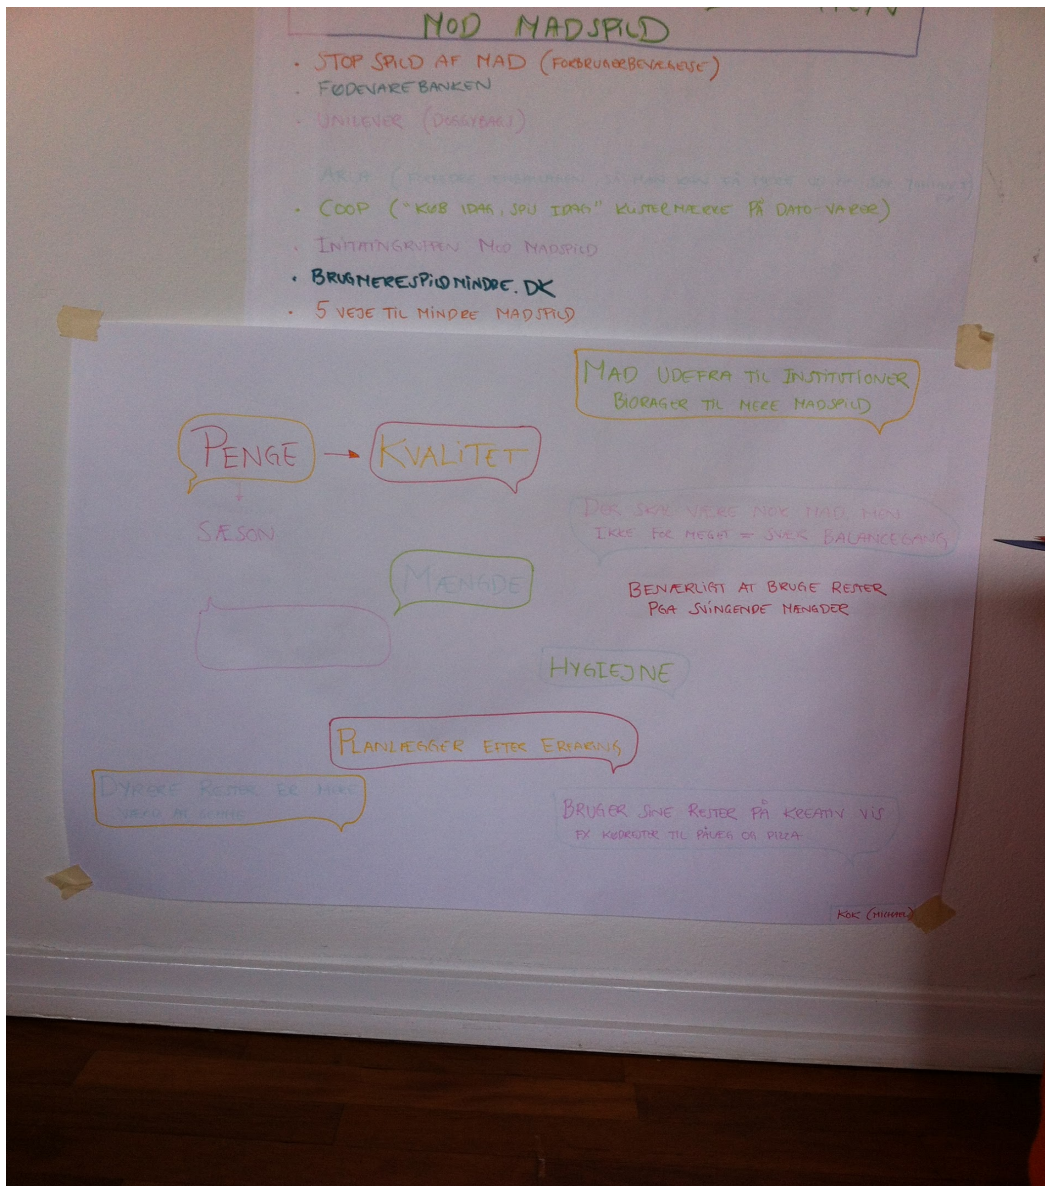 MOD MADSPILD
• STOP SPILD AF MAD (FORBRUGERBEVÆGELSE)
• FØDEVAREBANKEN
• UNILEVER (DOGGYBAGS)
ARLA (
• COOP ("KØB IDAG, SPIS IDAG" KLISTERMÆRKE PÅ DATO-VARER)
• INITIATIVGRUPPEN MOD MADSPILD
• BRUGMERESPILDMINDRE.DK
• 5 VEJE TIL MINDRE MADSPILD
MAD UDEFRA TIL INSTITUTIONER
BIDRAGER TIL MERE MADSPILD
PENGE → KVALITET
SÆSON
DER SKAL VÆRE NOK MAD, MEN
IKKE FOR MEGET = SVÆR BALANCEGANG
MÆNGDE
BESVÆRLIGT AT BRUGE RESTER
PGA SVINGENDE MÆNGDER
HYGIEJNE
PLANLÆGGER EFTER ERFARING
DYRERE RESTER ER MERE
VÆRD AT GEMME
BRUGER SINE RESTER PÅ KREATIV VIS
FX KØDRESTER TIL PÅLÆG OG PIZZA
KOK (MICHAEL)